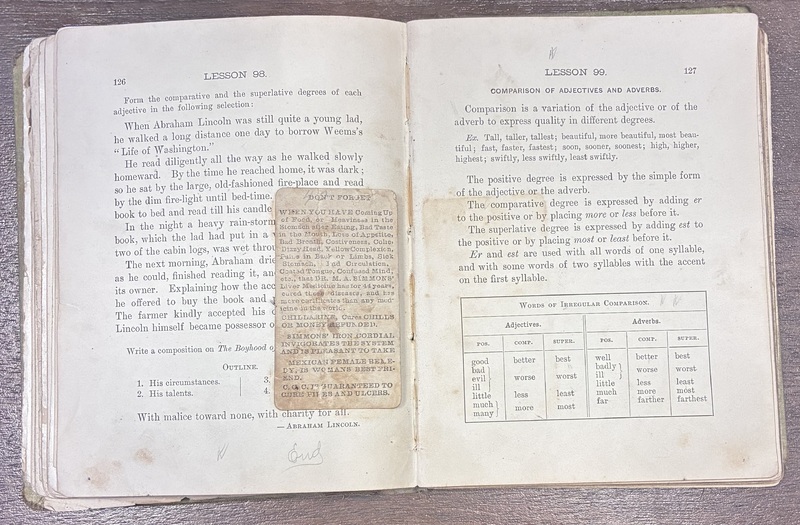 126
LESSON 98.
Form the comparative and the superlative degrees of each
adjective in the following selection:
When Abraham Lincoln was still quite a young lad,
he walked a long distance one day to borrow Weems's
"Life of Washington."
He read diligently all the way as he walked slowly
homeward. By the time he reached home, it was dark;
so he sat by the large, old-fashioned fire-place and read
by the dim fire-light until bed-time.
book to bed and read till his candle
In the night a heavy rain-storm
book, which the lad had put in a
two of the cabin logs, was wet
The next morning, Abraham
as he could, finished reading it,
its owner. Explaining how the
he offered to buy the book and
The farmer kindly accepted his
Lincoln himself became possessor
Write a composition on The Boyhood
OUTLINE.
1. His circumstances.
2. His talents.
3.
4.
With malice toward none, with charity for all.
—ABRAHAM LINCOLN.
End
DON'T FORGET
WHEN YOU HAVE Coming Up
of Food, or Heaviness in the
Stomach after Eating, Bad Taste
in the Mouth, Loss of Appetite,
Bad Breath, Costiveness, Colic,
Dizzy Head, Yellow Complexion,
Pains in Back or Limbs, Sick
Stomach, Circulation,
Coated Tongue, Confused Mind,
etc., that DR. M. A. SIMMONS'
Liver Medicine has for 44 years,
cured these diseases, and has
more certificates than any med-
icine in the world.
CHILLARINE, Cures CHILLS
OR MONEY REFUNDED.
SIMMONS' IRON CORDIAL
INVIGORATES THE SYSTEM
AND IS PLEASANT TO TAKE
MEXICAN FEMALE REME-
DY, IS WOMANS BEST FRI-
END.
GUARANTEED TO
CURE PILES AND ULCERS.
LESSON 99.
127
COMPARISON OF ADJECTIVES AND ADVERBS.
Comparison is a variation of the adjective or of the
adverb to express quality in different degrees.
Ex. Tall, taller, tallest; beautiful, more beautiful, most beau-
tiful; fast, faster, fastest; soon, sooner, soonest; high, higher,
highest; swiftly, less swiftly, least swiftly.
The positive degree is expressed by the simple form
of the adjective or the adverb.
The comparative degree is expressed by adding er
to the positive or by placing more or less before it.
The superlative degree is expressed by adding est to
the positive or by placing most or least before it.
Er and est are used with all words of one syllable,
and with some words of two syllables with the accent
on the first syllable.
WORDS OF IRREGULAR COMPARISON.
Adjectives. Adverbs.
POS. COMP. SUPER. POS. COMP. SUPER.
good better best well better best
bad badly
evil worse worst ill worse worst
ill little less least
little less least much more most
much more most far farther farthest
many